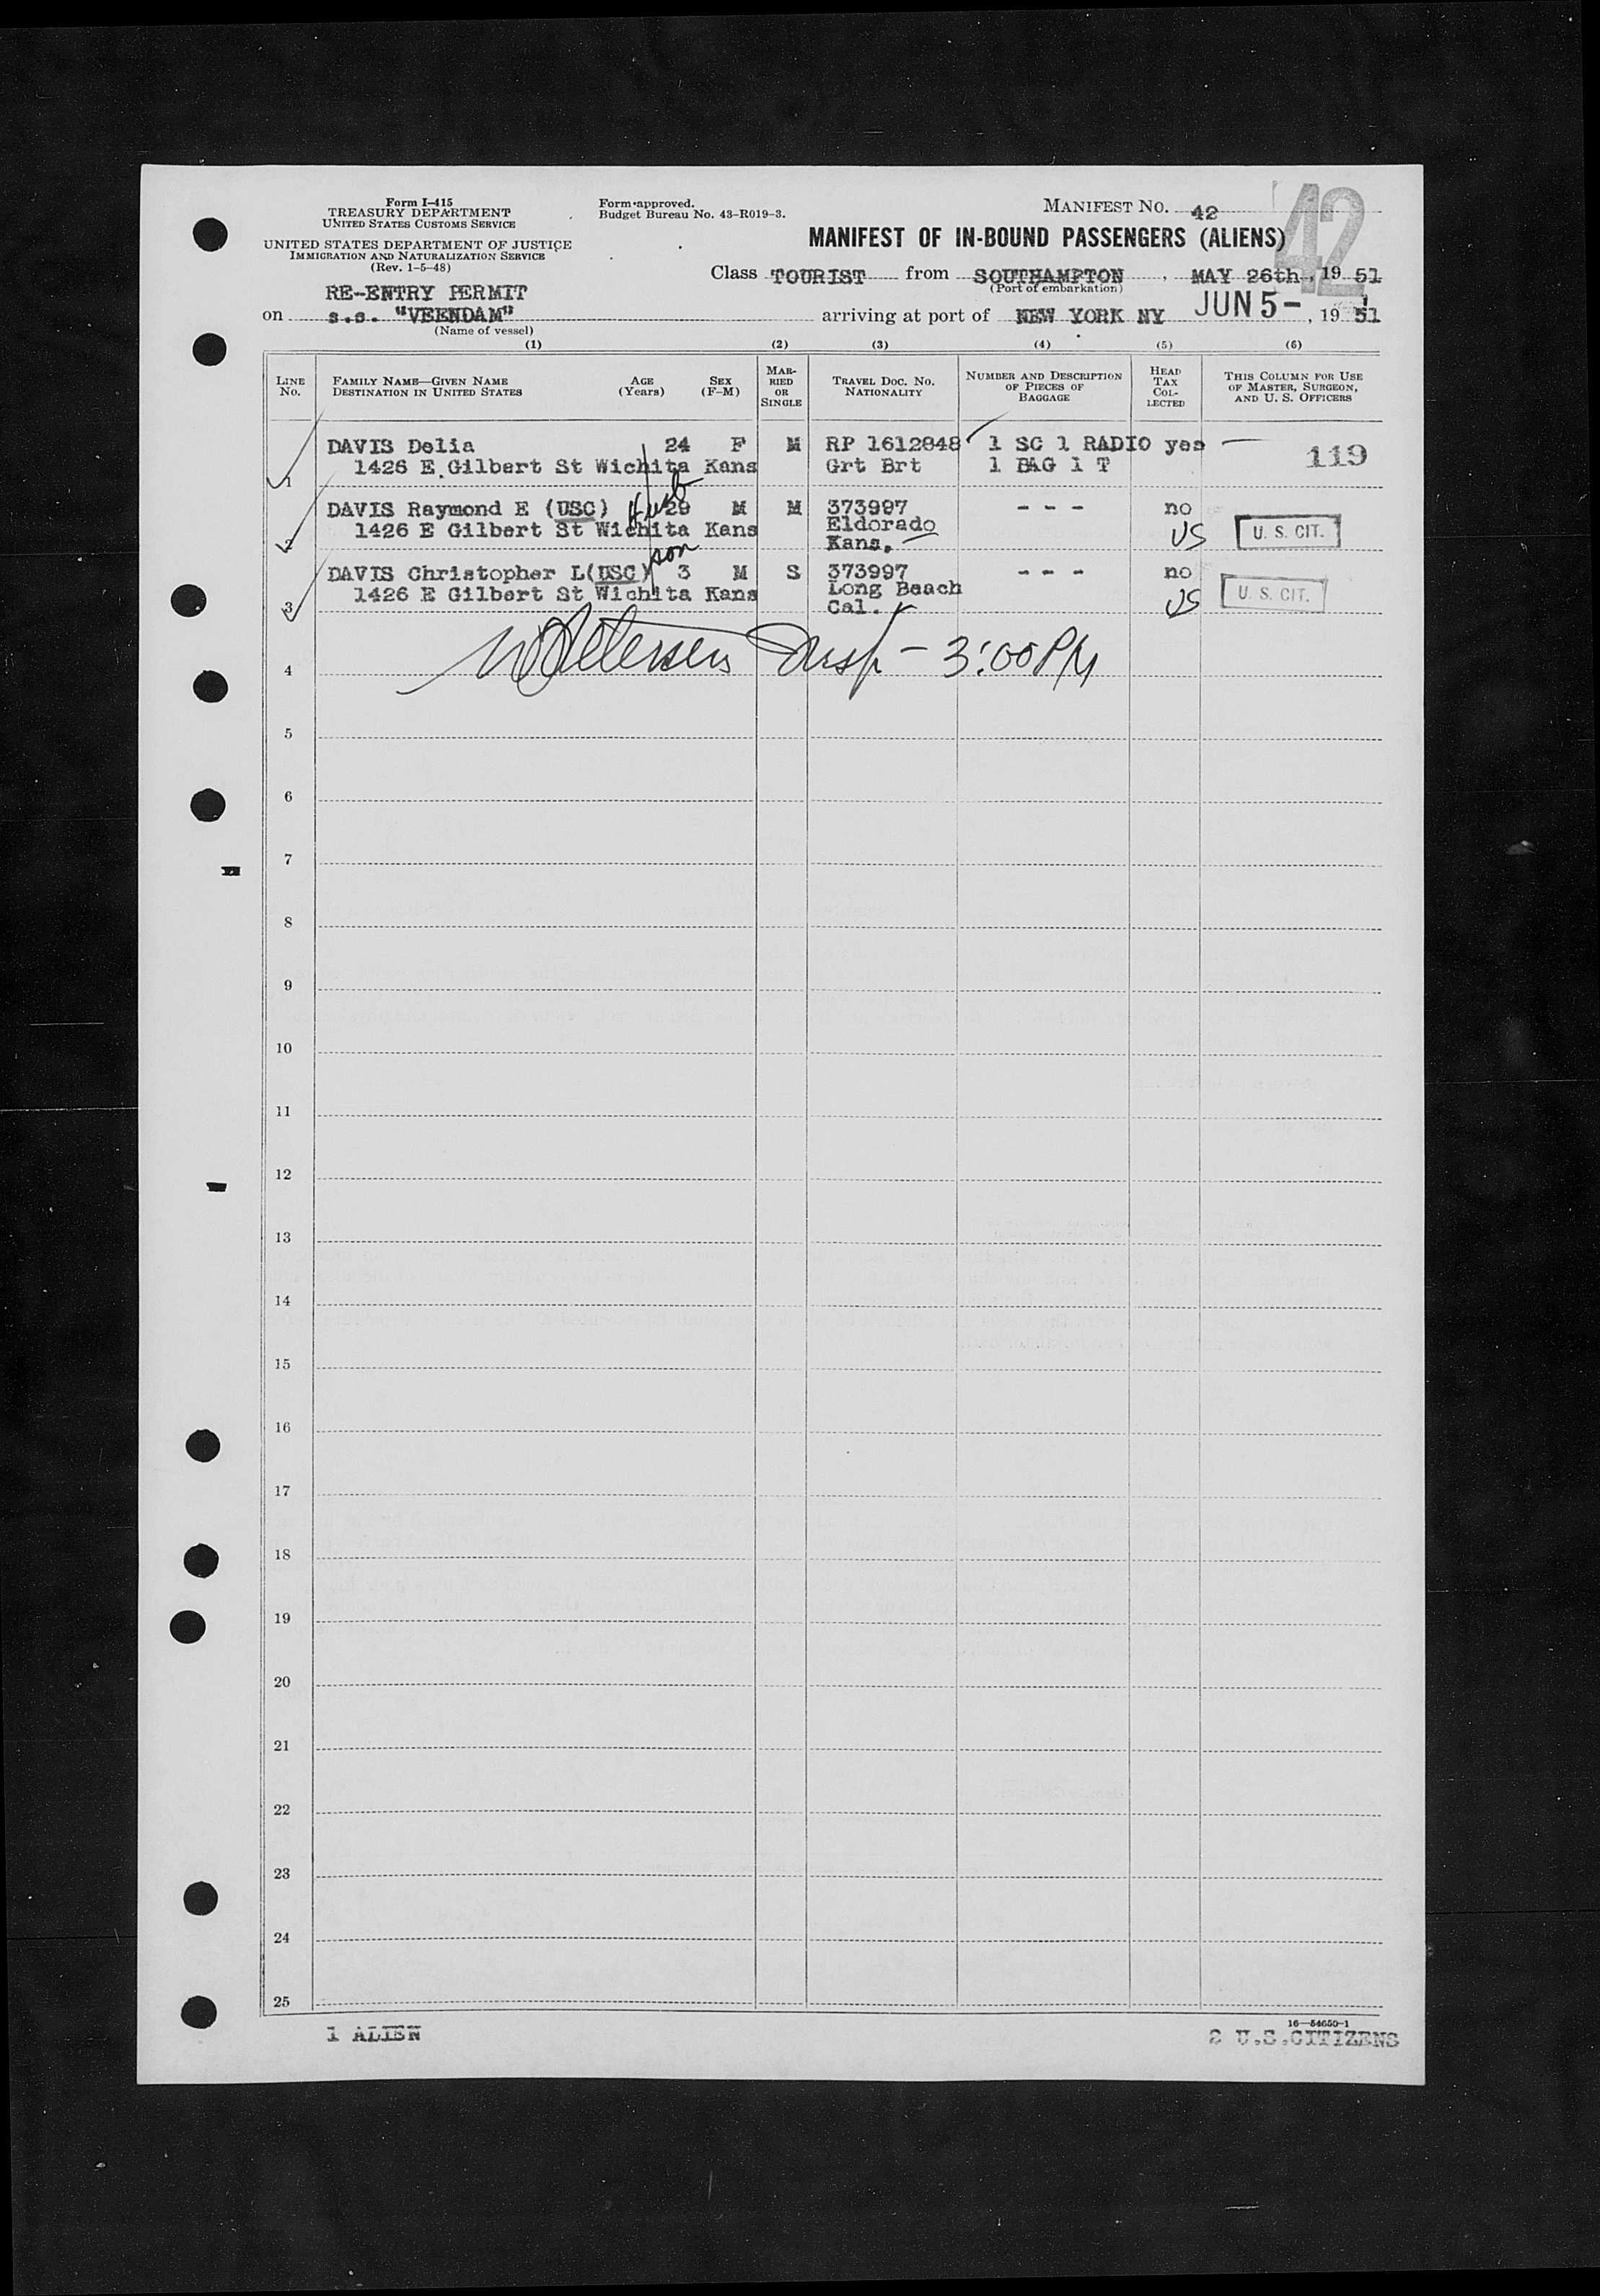 Form I-415
TREASURY DEPARTMENT
UNITED STATES CUSTOMS SERVICE
UNITED STATES DEPARTMENT OF JUSTICE
IMMIGRATION AND NATURALIZATION SERVICE
(Rev. 1-5-48)
Form approved.
Budget Bureau No. 43-R019-3.
MANIFEST NO. 42
42
MANIFEST OF IN-BOUND PASSENGERS (ALIENS)
Class TOURIST from SOUTHAMPTON, MAY 26th, 19 51
(Port of embarkation)
RE-ENTRY PERMIT
on s.s. "VEENDAM" arriving at port of NEW YORK NY JUN 5-, 19 51
(Name of vessel)
(1) (2) (3) (4) (5) (6)
LINE No.
FAMILY NAME—GIVEN NAME
DESTINATION IN UNITED STATES
AGE (Years)
SEX (F-M)
MARRIED OR SINGLE
TRAVEL DOC. NO. NATIONALITY
NUMBER AND DESCRIPTION OF PIECES OF BAGGAGE
HEAD TAX COLLECTED
THIS COLUMN FOR USE OF MASTER, SURGEON, AND U. S. OFFICERS
DAVIS Delia 24 F M RP 1612848 1 SC 1 RADIO yes 119
1 1426 E Gilbert St Wichita Kans Grt Brt 1 BAG 1 T
DAVIS Raymond E (USC) Husb 29 M M 373997 - - - no
2 1426 E Gilbert St Wichita Kans Eldorado Kans. US U. S. CIT.
DAVIS Christopher L(USC) son 3 M S 373997 - - - no
3 1426 E Gilbert St Wichita Kans Long Beach Cal. US U. S. CIT.
4 Insp - 3:00 PM
5
6
7
8
9
10
11
12
13
14
15
16
17
18
19
20
21
22
23
24
25
16-54650-1
1 ALIEN 2 U.S.CITIZENS